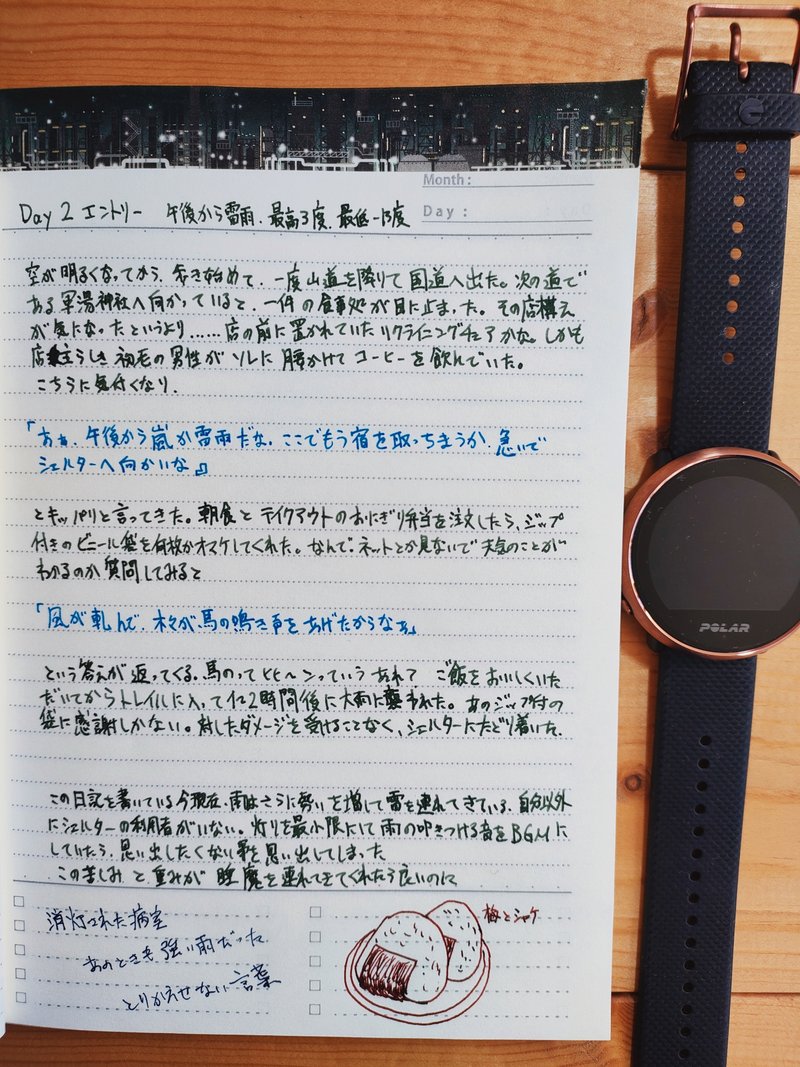 Month :
Day :
Day 2 エントリー 午後から雷雨. 最高3度. 最低-13度
空が明るくなってから、歩き始めて、一度山道を降りて国道へ出た。次の道で
ある軍湯神社へ向かっていると、一件の食事処が目に止まった。その店構え
が気になったというより……店の前に置かれていたリクライニングチェアかな。しかも
店主らしき初老の男性がソレに腰かけてコーヒーを飲んでいた。
こちらに気付くなり、
「あぁ、午後から嵐か雷雨だな。ここでもう宿を取っちまうか、急いで
シェルターへ向かいな」
とキッパリと言ってきた。朝食とテイクアウトのおにぎり弁当を注文したら、ジップ
付きのビニール袋を何枚かオマケしてくれた。なんで、ネットとか見ないで天気のことが
わかるのか質問してみると
「風が軋んで、木々が馬の鳴き声をあげたからなぁ」
という答えが返ってくる。馬のってヒヒ〜ンっていうあれ? ご飯をおいしくいた
だいてからトレイルに入って1〜2時間後に大雨に襲われた。あのジップ付の
袋に感謝しかない。対したダメージを受けることなく、シェルターにたどり着いた。
この日記を書いている今現在、雨はさらに勢いを増して雷を連れてきている、自分以外
にシェルターの利用者がいない。灯りを最小限にして雨の叩きつける音をBGMに
していたら、思い出したくない事を思い出してしまった
この苦しみと重みが睡魔を連れてきてくれたら良いのに
消灯された病室
あのときも強い雨だった
とりかえせない言葉
梅とシャケ
POLAR